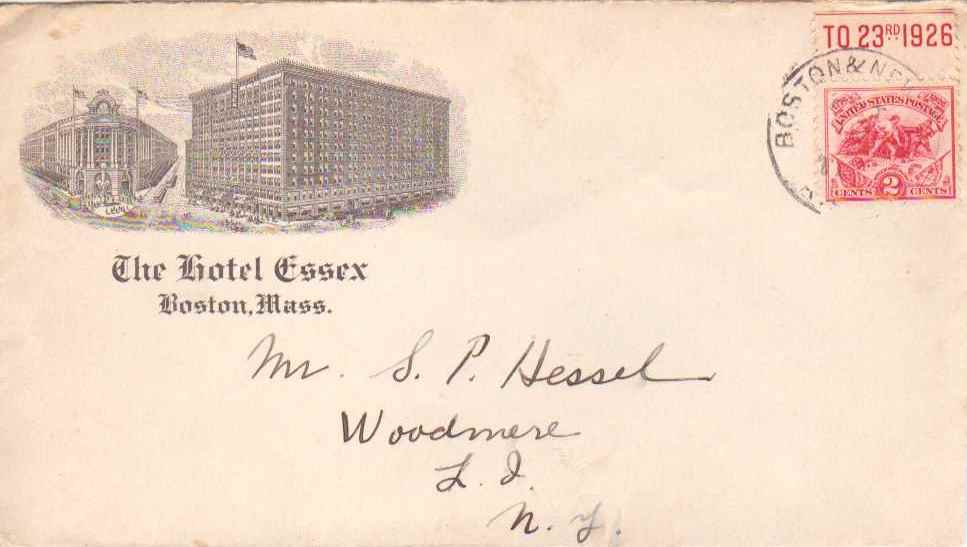 TO 23RD 1926
BOSTON & NE
UNITED STATES POSTAGE
CENTS 2 CENTS
The Hotel Essex
Boston, Mass.
Mr. S. P. Hessel
Woodmere
L. I.
N. Y.